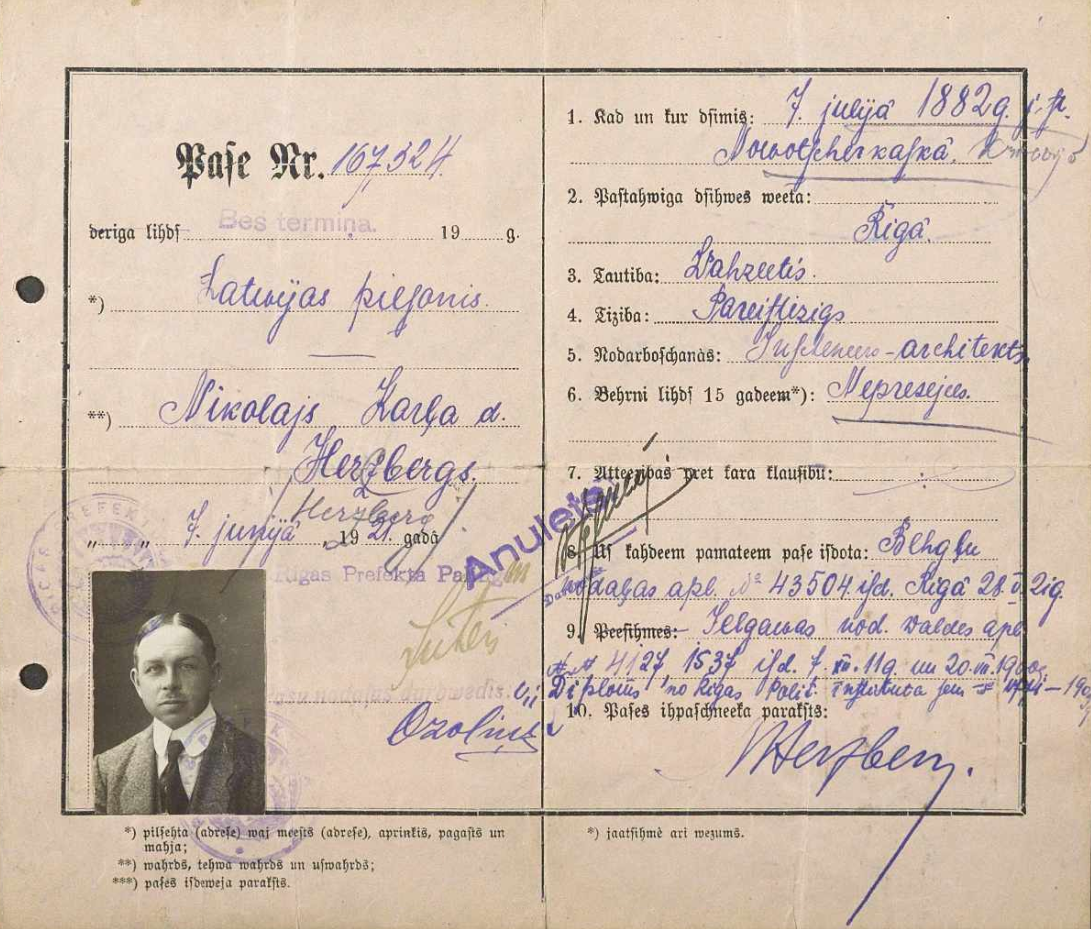 Paſe Nr. 167,324.
deriga lihdſ Bes termiņa. 19 g.
*) Latwijas pilſonis.
**) Nikolajs Karļa d.
Herzbergs.
Herzberg
„ „ 7. junijā 1921. gadā
Rigas Prefekta Palīgs
Ozoliņš
1. Kad un kur dſimis: 7. julijā 1882g. j. ſt.
Nowotſcherkaſkā.
2. Paſtahwiga dſihwes weeta:
Rigā.
3. Tautiba: Wahzeetis.
4. Tiziba: Pareiſtizigs
5. Nodarboſchanàs: Inſcheneers-architekts
6. Behrni lihdſ 15 gadeem*): Neprezejees.
7. Atteezibas pret kara klauſibu:
Anulēta
8. Uſ kahdeem pamateem paſe iſdota: Behgļu
nodaļas apl. № 43504. iſd. Rigā 28. V. 21g.
9. Peeſihmes: Jelgawas nod. waldes apl.
4127 1537 iſd. 7. 11g un 20.
Diploms no Rigas Polit. inſtituta
10. Paſes ihpaſchneeka parakſts:
NHerzberg.
*) pilſehta (adreſe) waj meeſts (adreſe), aprinkis, pagaſts un
mahja;
**) wahrds, tehwa wahrds un uſwahrds;
***) paſes iſdeweja parakſts.
*) jaatſihmē ari wezums.